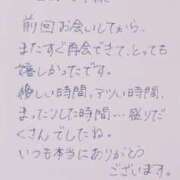 前回お会いしてから、
またすぐ再会できて、とっても
嬉しかったです。
優しい時間、アツい時間、
まったりした時間…盛りだ
くさんでしたね。
いつも本当にありがとう
ございます。